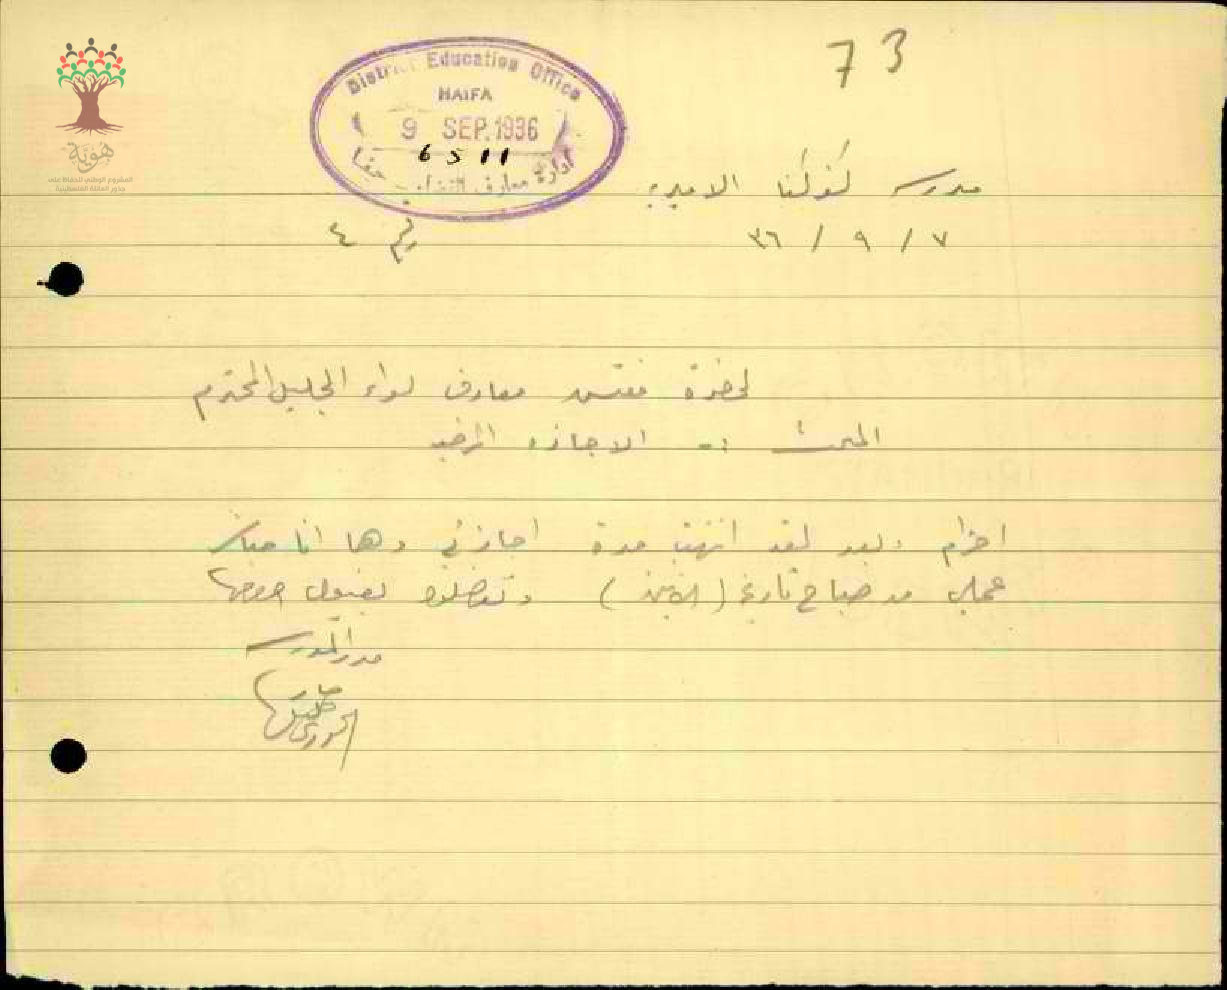 73
District Education Office
HAIFA
9 SEP. 1936
6511
ادارة معارف القضاء حيفا
هوية
المشروع الوطني للحفاظ على
جذور العائلة الفلسطينية
مدرسة كفركنا الاميرية
٧ / ٩ / ٣٦
٤
لحضرة مفتش معارف لواء الجليل المحترم
المبحث :- الاجازه المرضيه
احترام وبعد لقد انتهت مدة اجازتي وها انا
عملي من صباح تاريخ (الاثنين) وتفضلوا بقبول
مدير المدرسة
الخوري